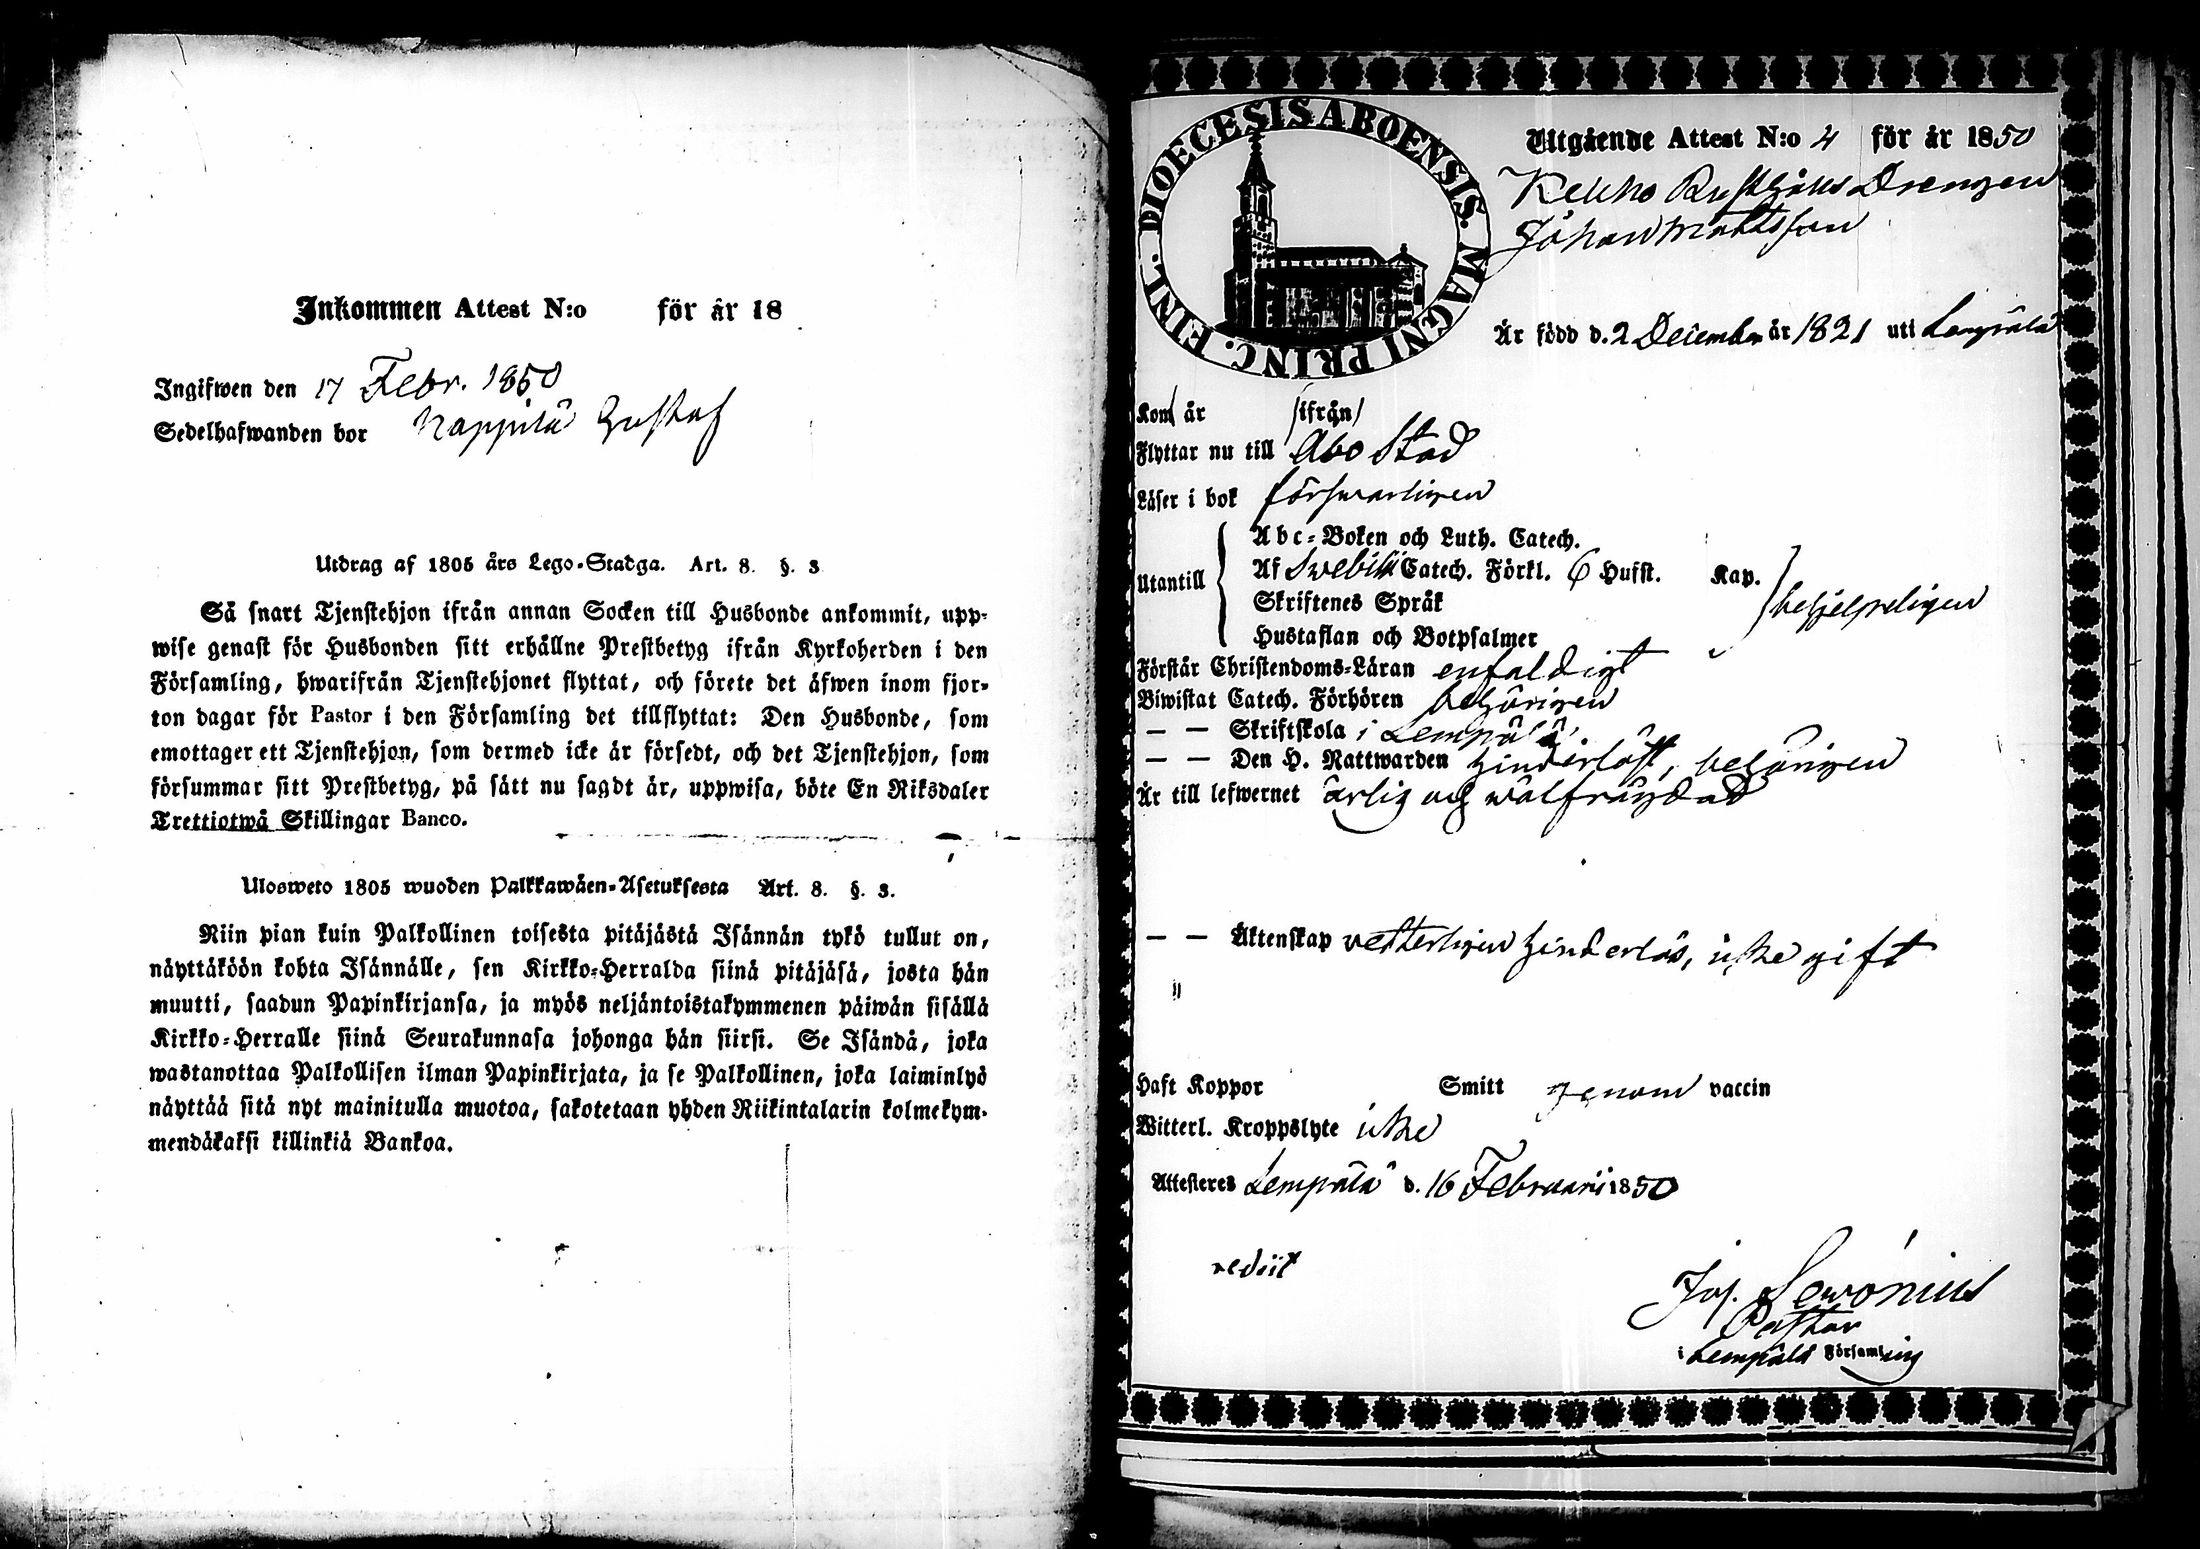 Inkommen Attest N:o för år 18
Ingifwen den 17 Febr. 1850
Sedelhafwanden bor Nappilä Gustaf
Utdrag af 1805 års Lego-Stadga. Art. 8. §. 3
Så snart Tjenstehjon ifrån annan Socken till Husbonde ankommit, upp-
wise genast för Husbonden sitt erhållne Prestbetyg ifrån Kyrkoherden i den
Församling, hwarifrån Tjenstehjonet flyttat, och förete det äfwen inom fjor-
ton dagar för Pastor i den Församling det tillflyttat: Den Husbonde, som
emottager ett Tjenstehjon, som dermed icke är försedt, och det Tjenstehjon, som
försummar sitt Prestbetyg, på sätt nu sagdt är, uppwisa, böte En Riksdaler
Trettiotwå Skillingar Banco.
Ulosweto 1805 wuoden Palkkawäen-Asetuksesta Art. 8. §. 3.
Niin pian kuin Palkollinen toisesta pitäjästä Isännän tykö tullut on,
näyttäköön kohta Isännälle, sen Kirkko-Herralda siinä pitäjäsä, josta hän
muutti, saadun Papinkirjansa, ja myös neljäntoistakymmenen päiwän sisällä
Kirkko-Herralle siinä Seurakunnasa johonga hän siirsi. Se Isändä, joka
wastanottaa Palkollisen ilman Papinkirjata, ja se Palkollinen, joka laiminlyö
näyttää sitä nyt mainitulla muotoa, sakotetaan yhden Riikintalarin kolmekym-
mendäkaksi killinkiä Bankoa.
DIOECESIS ABOENSIS. MAGNI PRINC. FINL.
Utgående Attest N:o 4 för år 1850
Rusthålls Drengen
Johan Mattsson
Är född d. 2 December år 1821 uti Lempälä
Kom år ifrån
Flyttar nu till Åbo Stad
Läser i bok försvarligen
Utantill
Abc-Boken och Luth. Catech.
Af Swebilii Catech. Förkl. 6 Hufst. Kap.
Skriftenes Språk
Hustaflan och Botpsalmer
behjelpeligen
Förstår Christendoms-Läran enfaldigt
Biwistat Catech. Förhören behörigen
— — Skriftskola i Lempälä
— — Den H. Nattwarden hinderlöst, behörigen
Är till lefwernet ärlig och wälfrägdad
— — Äktenskap vetterligen hinderlös, icke gift
"
Haft Koppor Smitt genom vaccin
Witterl. Kroppslyte icke
Attesteres Lempälä d. 16 Februarii 1850
rediit
Jos. Sewónius
Pastor
i Lempälä Församling